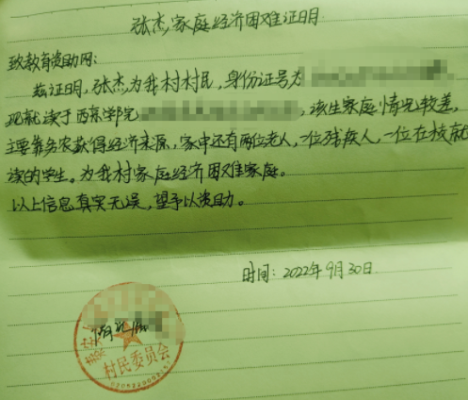 张杰家庭经济困难证明
致教育资助网：
兹证明，张杰为我村村民，身份证号为
现就读于西京学院，该生家庭情况较差，
主要靠务农获得经济来源，家中还有两位老人，一位残疾人，一位在校就
读的学生。为我村家庭经济困难家庭。
以上信息真实无误，望予以资助。
时间：2022年9月30日
村民委员会